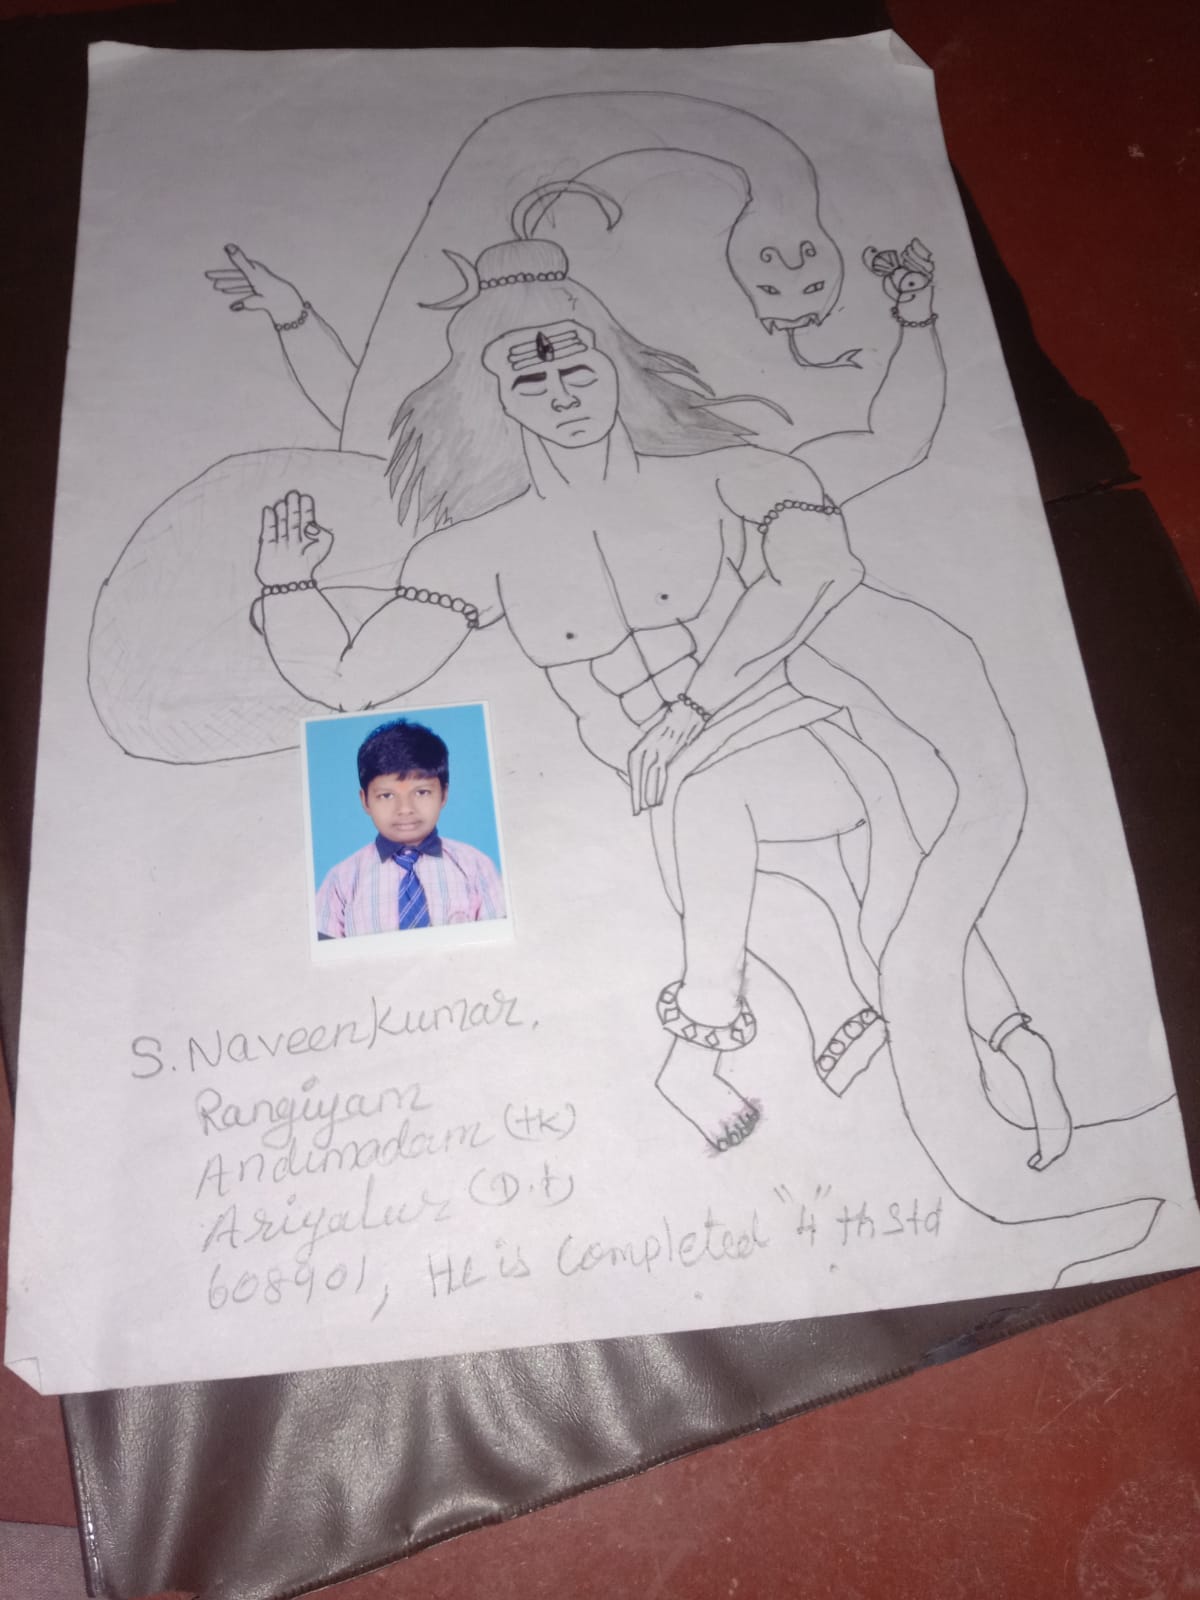 S. Naveenkumar.
Rangiyam
Andimadam (tk)
Ariyalur (D.t)
608901, He is Completed "4" th std